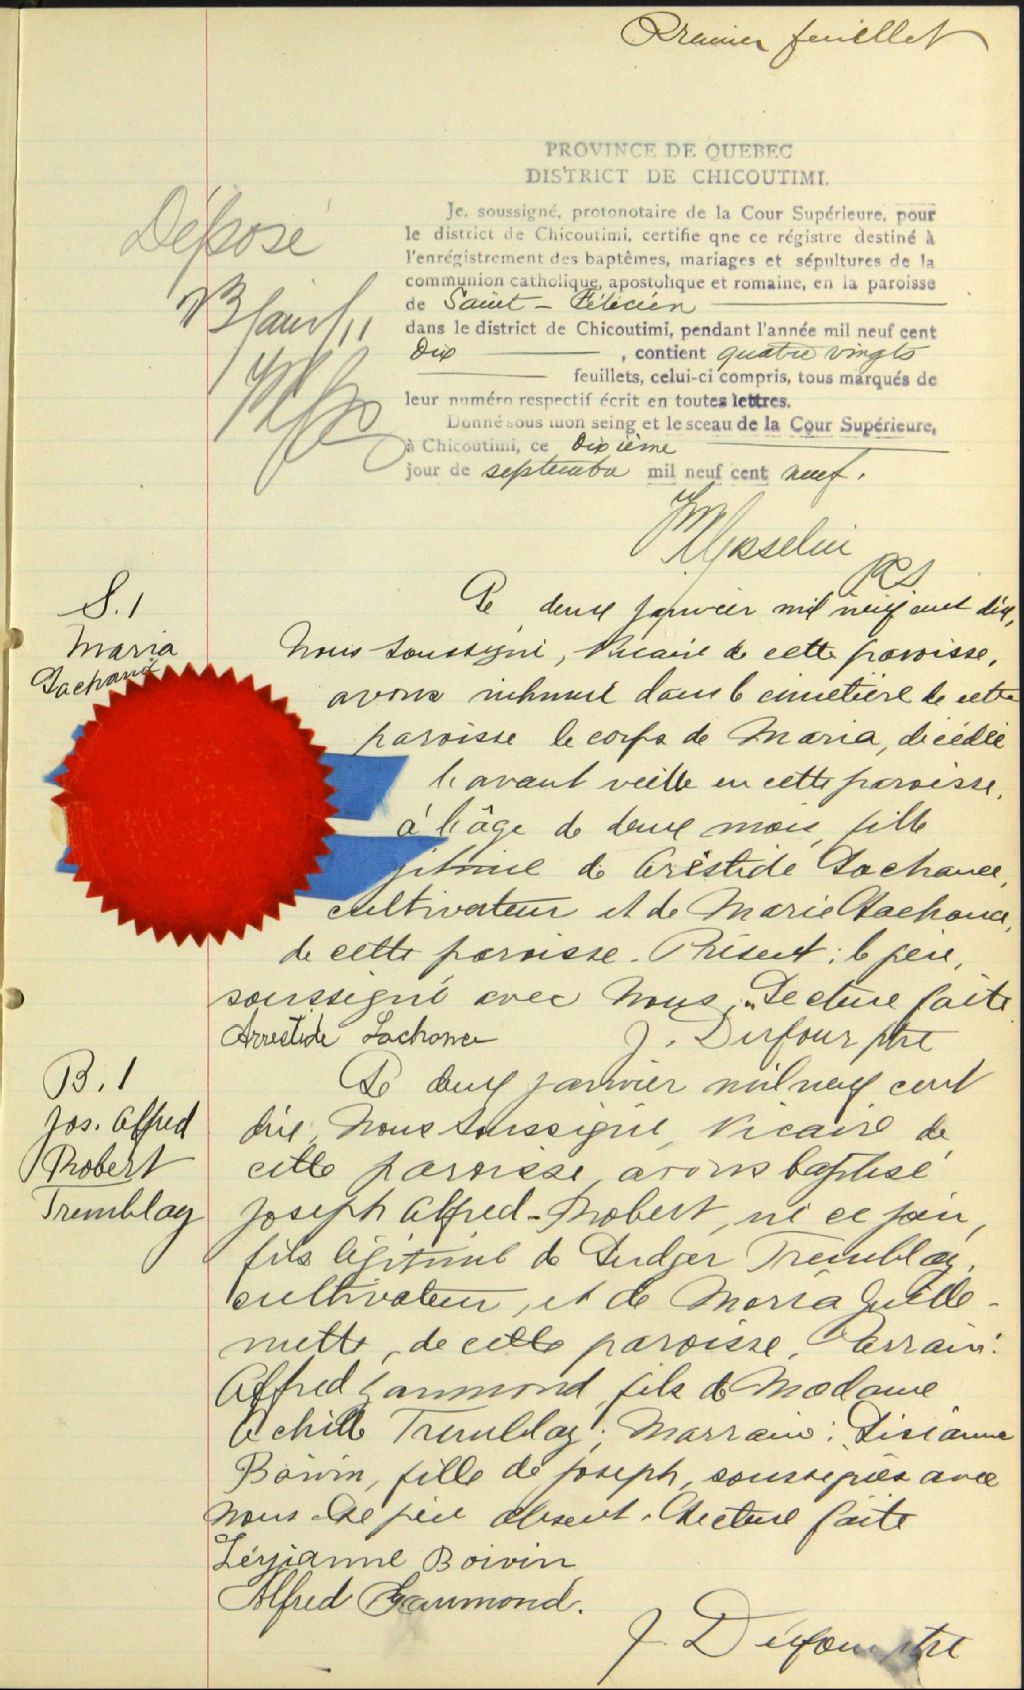 Premier feuillet
PROVINCE DE QUEBEC
DISTRICT DE CHICOUTIMI.
Je, soussigné, protonotaire de la Cour Supérieure, pour
le district de Chicoutimi, certifie qne ce régistre destiné à
l'enrégistrement des baptêmes, mariages et sépultures de la
communion catholique, apostolique et romaine, en la paroisse
de Saint-Félicien
dans le district de Chicoutimi, pendant l'année mil neuf cent
Dix, contient quatre vingts
feuillets, celui-ci compris, tous marqués de
leur numéro respectif écrit en toutes lettres.
Donné sous mon seing et le sceau de la Cour Supérieure,
à Chicoutimi, ce Dixième
jour de septembre mil neuf cent neuf.
Déposé
PCS
S. 1
Maria
Lachance
Le deux janvier mil neuf cent dix,
Nous soussigné, Vicaire de cette paroisse,
avons inhumé dans le cimetière de cette
paroisse le corps de Maria, décédée
l'avant veille en cette paroisse,
à l'âge de deux mois, fille
gitime de Aristide Lachance,
cultivateur et de Marie Lachance,
de cette paroisse. Présent: le père,
soussigné avec Nous. Lecture faite
Arrestide Lachance
J. Dufour ptre
B. 1
Jos. Alfred
Robert
Tremblay
Le deux janvier mil neuf cent
dix, Nous soussigné, Vicaire de
cette paroisse, avons baptisé
Joseph Alfred-Robert, né ce jour,
fils légitime de Ludger Tremblay,
cultivateur, et de Maria Guille-
mette, de cette paroisse. Parrain:
Alfred Gaumond, fils de Madame
Achille Tremblay; Marraine: Lisianne
Boivin, fille de Joseph, soussignés avec
nous. Le père absent. Lecture faite
Lézianne Boivin
Alfred Gaumond.
J. Dufour ptre